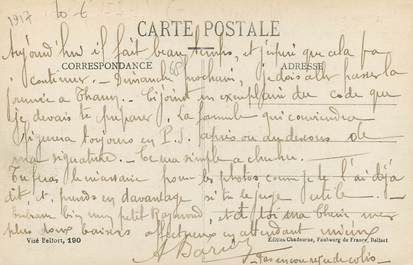 1917 10-6
CARTE POSTALE
Aujourd'hui il fait beau temps, et j'espère que cela va
CORRESPONDANCE ADRESSE
continuer. - Dimanche prochain, je dois aller passer la
journée à Thann. - Ci joint un exemplaire du code que
je devais te préparer, la formule qui conviendra
figurera toujours en P.S. après ou en dessous de
ma signature. - Ce sera simple à chercher.
Tu feras le nécessaire pour les photos comme je te l'ai déjà
dit, et, prends en davantage si tu le juge utile. -
Embrasse bien mon petit Raymond, et toi ma chérie mes
plus doux baisers affectueux en attendant mieux
Vizé Belfort, 190
Edition Chadourne, Faubourg de France, Belfort
- Pas encore reçu de colis -